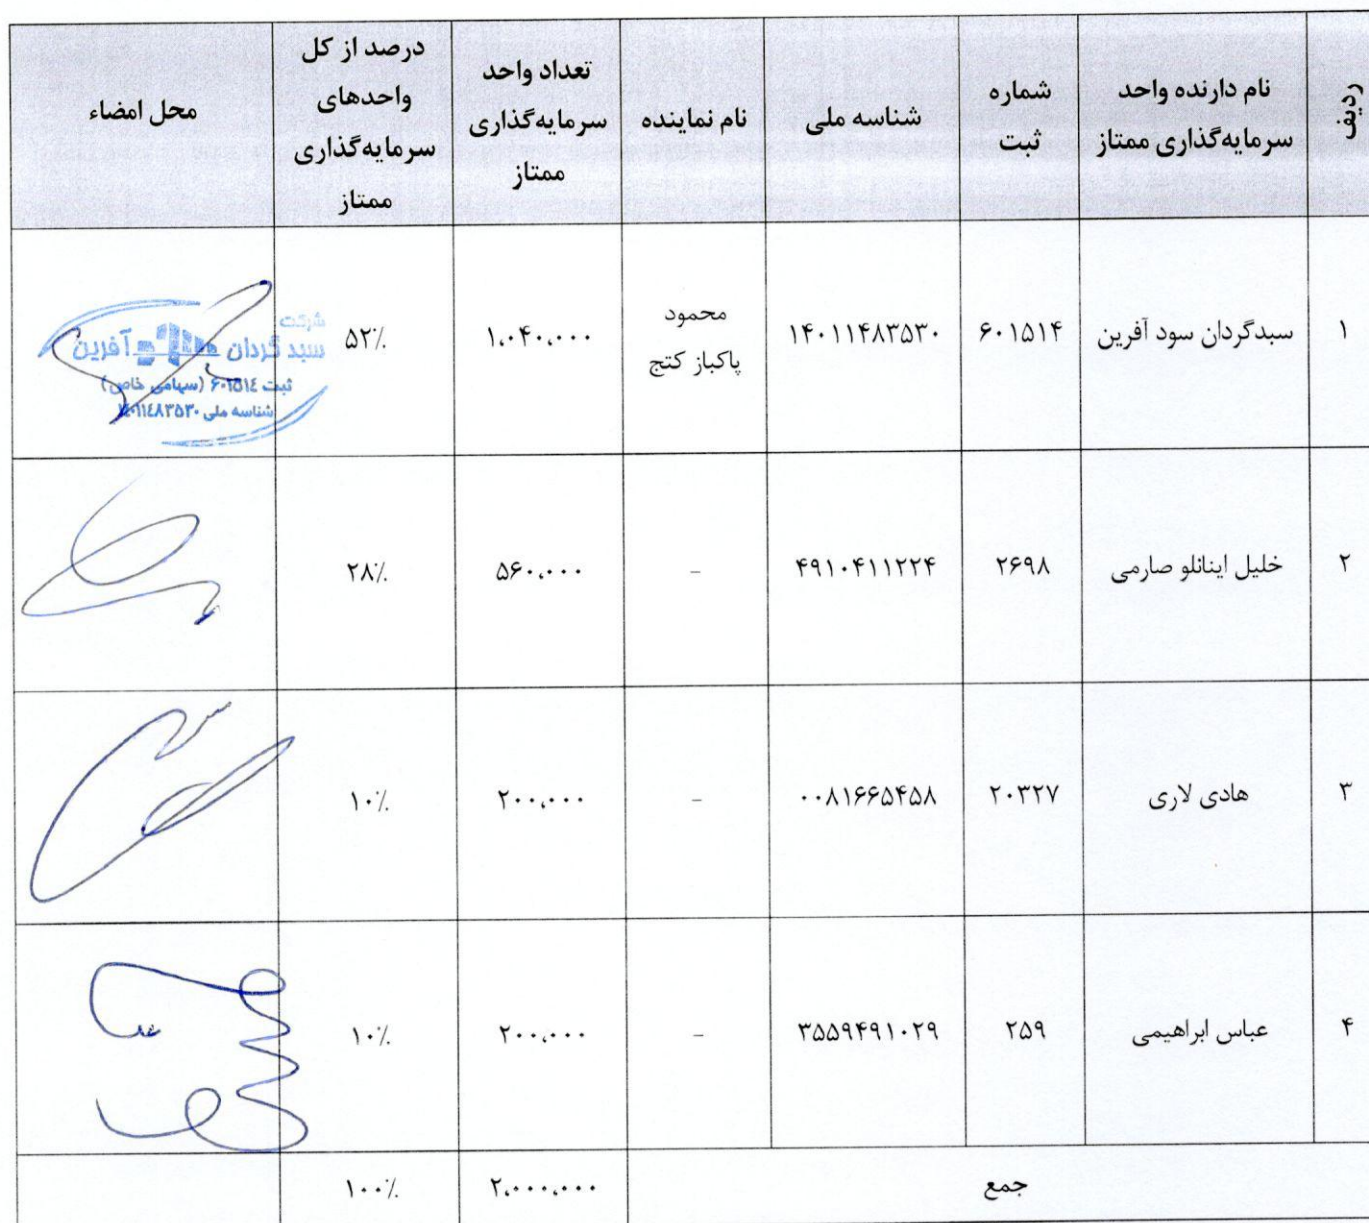 ردیف
نام دارنده واحد
سرمایه‌گذاری ممتاز
شماره
ثبت
شناسه ملی
نام نماینده
تعداد واحد
سرمایه‌گذاری
ممتاز
درصد از کل
واحدهای
سرمایه‌گذاری
ممتاز
محل امضاء
۱
سبدگردان سود آفرین
۶۰۱۵۱۴
۱۴۰۱۱۴۸۳۵۳۰
محمود
پاکباز کتج
۱،۰۴۰،۰۰۰
۵۲٪
شرکت
سبد گردان سود آفرین
ثبت ۶۰۱۵۱۴ (سهامی خاص)
شناسه ملی ۱۴۰۱۱۴۸۳۵۳۰
۲
خلیل اینانلو صارمی
۲۶۹۸
۴۹۱۰۴۱۱۲۲۴
-
۵۶۰،۰۰۰
۲۸٪
۳
هادی لاری
۲۰۳۲۷
۰۰۸۱۶۶۵۴۵۸
-
۲۰۰،۰۰۰
۱۰٪
۴
عباس ابراهیمی
۲۵۹
۳۵۵۹۴۹۱۰۲۹
-
۲۰۰،۰۰۰
۱۰٪
جمع
۲،۰۰۰،۰۰۰
۱۰۰٪